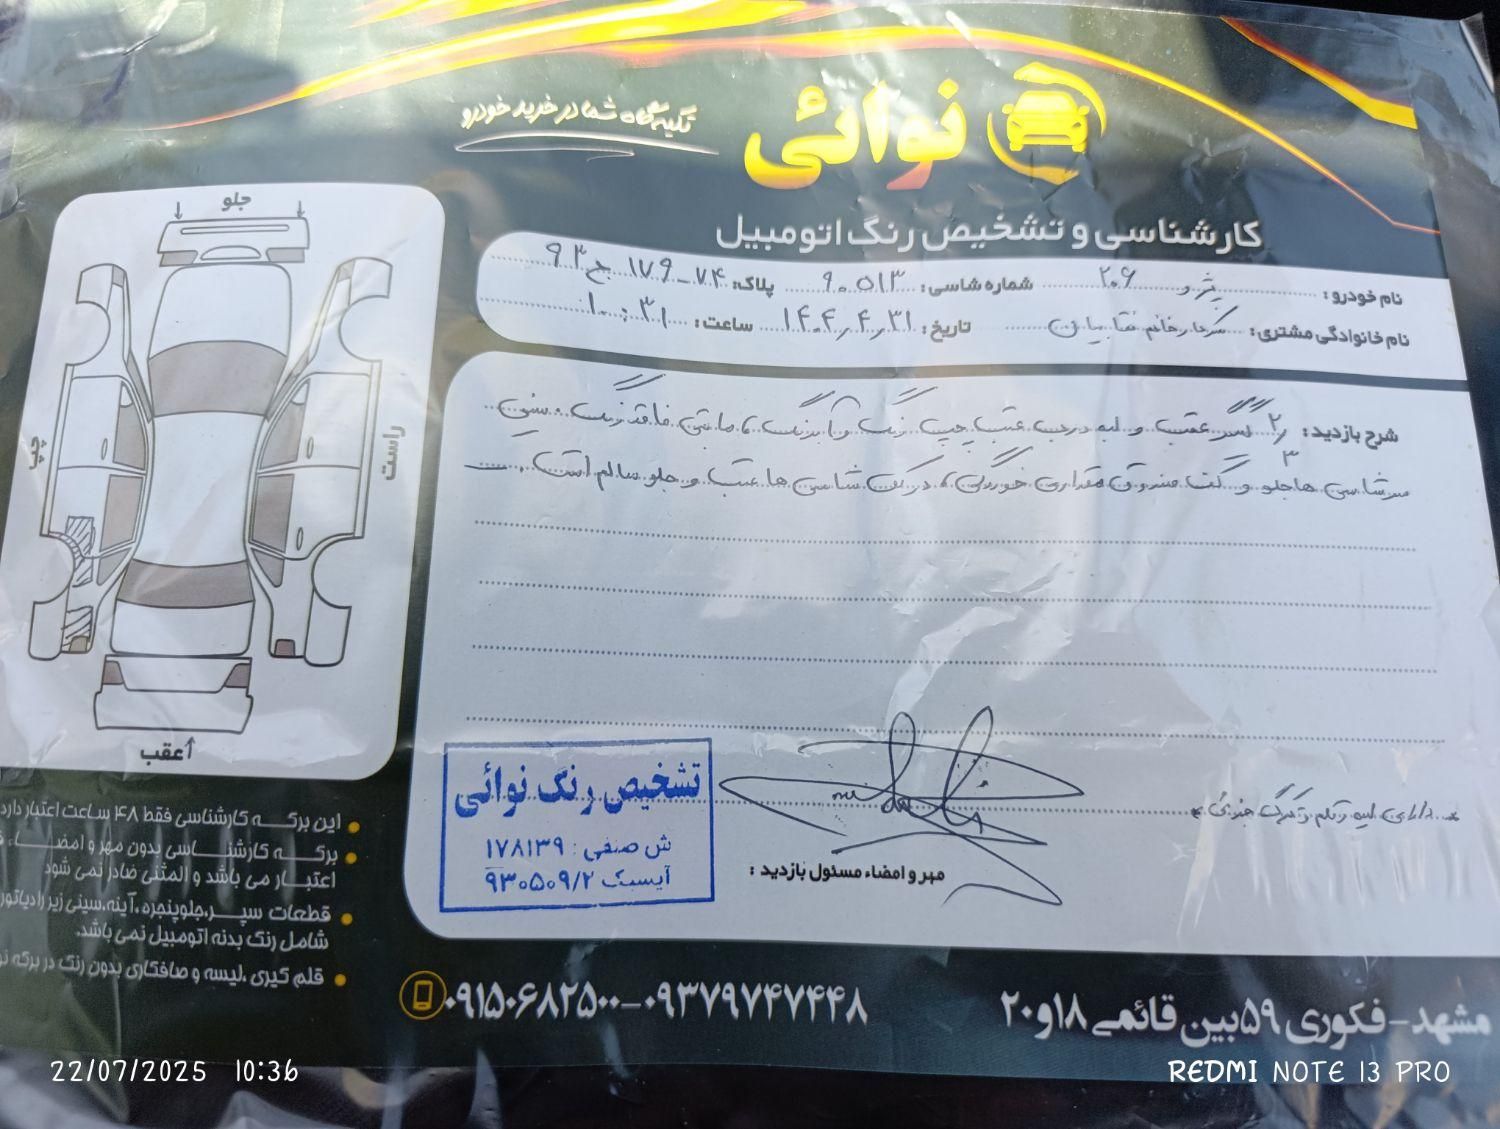 نوائی
تکیه‌گاه شما در خرید خودرو
کارشناسی و تشخیص رنگ اتومبیل
نام خودرو: پژو ۲۰۶ شماره شاسی: ۹۰۵۱۳ پلاک: ۷۴-۱۷۹ ج ۹۳
نام خانوادگی مشتری: سرکار خانم نقابیان تاریخ: ۱۴۰۴٫۴٫۳۱ ساعت: ۱۰:۳۱
شرح بازدید: ۲٫ گلگیر عقب و لبه درب عقب چپ رنگ مابقی فاقد رنگ، سینی
سرشاسی ها جلو و کف صندوق مقداری خوردگی، شاسی ها عقب و جلو سالم است.
جلو
چپ
راست
عقب
تشخیص رنگ نوائی
ش صنفی: ۱۷۸۱۳۹
آیسیک ۹۳۰۵۰۹/۲
مهر و امضاء مسئول بازدید:
این برگه کارشناسی فقط ۴۸ ساعت اعتبار دارد
برگه کارشناسی بدون مهر و امضاء
اعتبار می باشد و المثنی صادر نمی شود
قطعات سپر، جلوپنجره، آینه، سینی زیر رادیاتور
شامل رنگ بدنه اتومبیل نمی باشد.
قلم گیری، لیسه و صافکاری بدون رنگ در برگه
۰۹۱۵۰۶۸۲۵۰۰-۰۹۳۷۹۷۴۷۴۴۸
مشهد-فکوری ۵۹ بین قائمی ۱۸ و ۲۰
22/07/2025 10:36
REDMI NOTE 13 PRO